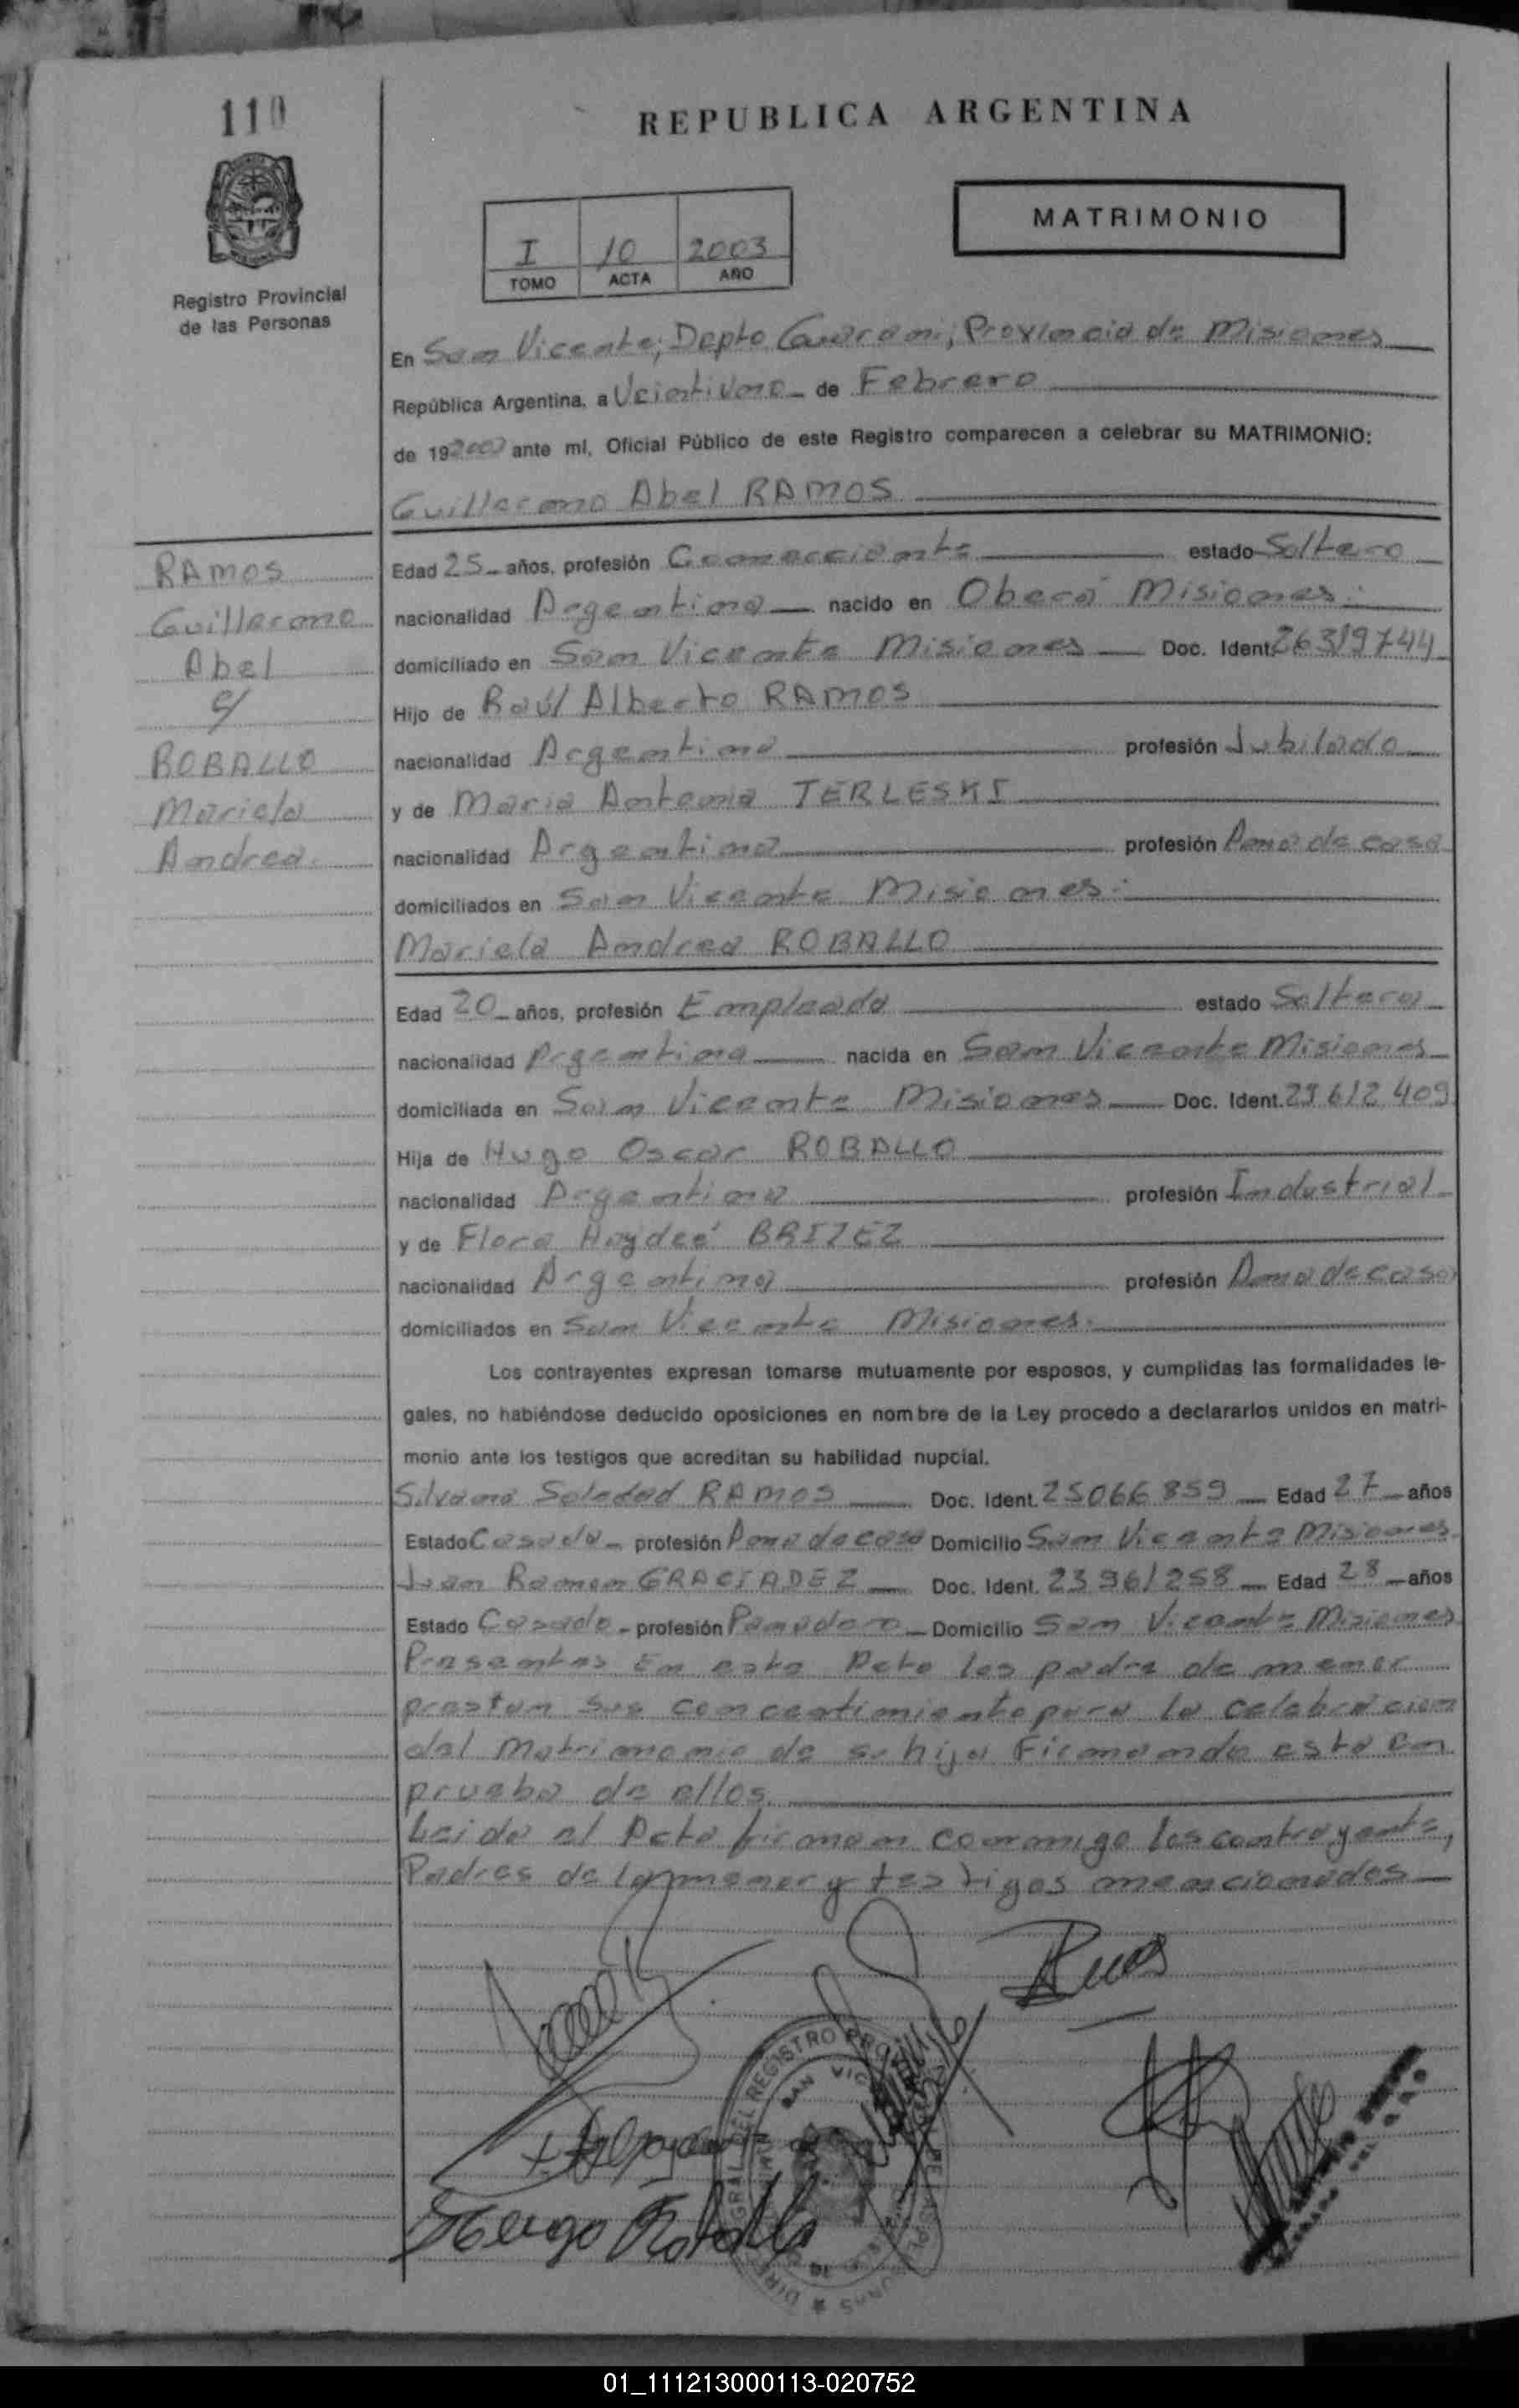 110
REPUBLICA ARGENTINA
MATRIMONIO
I 10 2003
TOMO ACTA AÑO
Registro Provincial
de las Personas
En San Vicente; Depto Guarani; Provincia de Misiones
República Argentina, a Veintiuno de Febrero
de 192003 ante mi, Oficial Público de este Registro comparecen a celebrar su MATRIMONIO:
Guillermo Abel RAMOS
RAMOS
Guillermo
Abel
c/
ROBALLO
Mariela
Andrea.
Edad 25 años, profesión Comerciante estado Soltero
nacionalidad Argentina nacido en Oberá Misiones.
domiciliado en San Vicente Misiones Doc. Ident. 26319744
Hijo de Raúl Alberto RAMOS
nacionalidad Argentina profesión Jubilado
y de Maria Antonia TERLESKI
nacionalidad Argentina profesión Ama de casa
domiciliados en San Vicente Misiones.
Mariela Andrea ROBALLO
Edad 20 años, profesión Empleada estado Soltera
nacionalidad Argentina nacida en San Vicente Misiones
domiciliada en San Vicente Misiones Doc. Ident. 29612409
Hija de Hugo Oscar ROBALLO
nacionalidad Argentina profesión Industrial
y de Flora Haydeé BRITEZ
nacionalidad Argentina profesión Ama de casa
domiciliados en San Vicente Misiones.
Los contrayentes expresan tomarse mutuamente por esposos, y cumplidas las formalidades le-
gales, no habiéndose deducido oposiciones en nombre de la Ley procedo a declararlos unidos en matri-
monio ante los testigos que acreditan su habilidad nupcial.
Silvana Soledad RAMOS Doc. Ident. 25066859 Edad 27 años
Estado Casada profesión Ama de casa Domicilio San Vicente Misiones
Juan Ramon GRACIADEZ Doc. Ident. 23961258 Edad 28 años
Estado Casado profesión Panadero Domicilio San Vicente Misiones
Presentes En este Acto los padre de menor
prestan sus concentimiento para la celebracion
del Matrimonio de su hija Firmando esta en
prueba de ellos.
Leida el Acta firman conmigo los contrayente,
Padres de la menor y testigos mencionados
Hugo Roballo
01_111213000113-020752